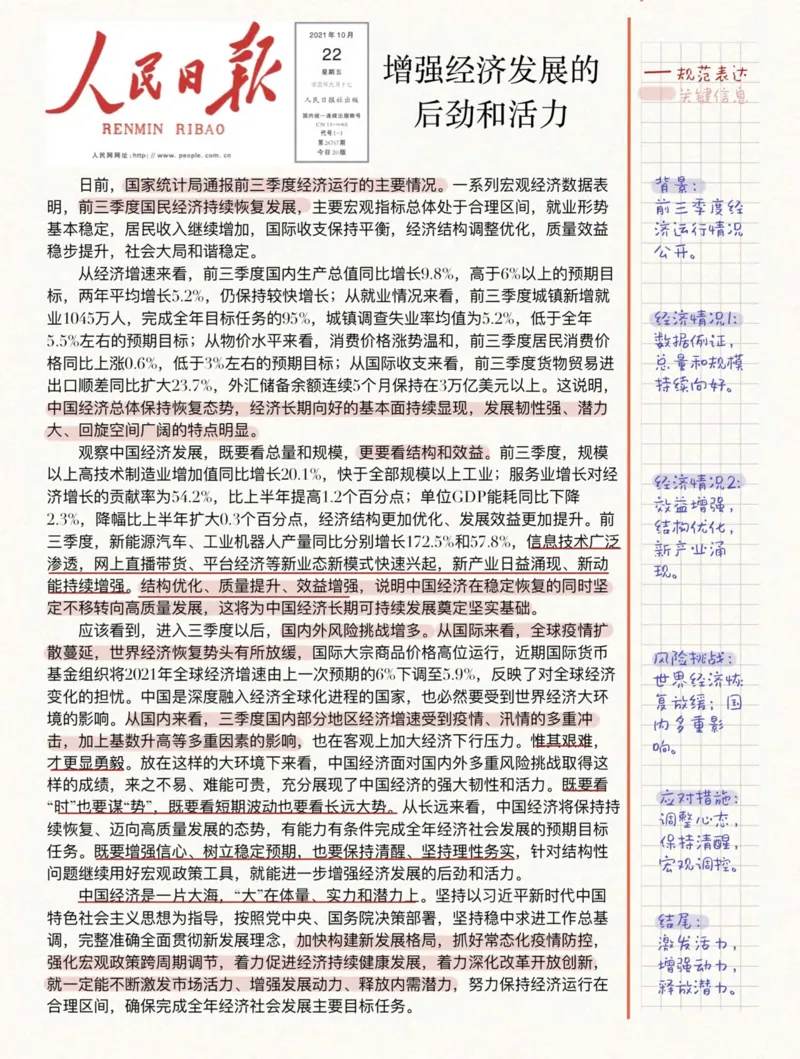 人民日报
RENMIN RIBAO
人民网网址:http://www.people.com.cn
2021年10月
22
星期五
人民日报社出版
国内统一连续出版物号
代号1-1
今日20版
增强经济发展的
后劲和活力
日前，国家统计局通报前三季度经济运行的主要情况。一系列宏观经济数据表
明，前三季度国民经济持续恢复发展，主要宏观指标总体处于合理区间，就业形势
基本稳定，居民收入继续增加，国际收支保持平衡，经济结构调整优化，质量效益
稳步提升，社会大局和谐稳定。
从经济增速来看，前三季度国内生产总值同比增长9.8%，高于6%以上的预期目
标，两年平均增长5.2%，仍保持较快增长；从就业情况来看，前三季度城镇新增就
业1045万人，完成全年目标任务的95%，城镇调查失业率均值为5.2%，低于全年
5.5%左右的预期目标；从物价水平来看，消费价格涨势温和，前三季度居民消费价
格同比上涨0.6%，低于3%左右的预期目标；从国际收支来看，前三季度货物贸易进
出口顺差同比扩大23.7%，外汇储备余额连续5个月保持在3万亿美元以上。这说明，
中国经济总体保持恢复态势，经济长期向好的基本面持续显现，发展韧性强、潜力
大、回旋空间广阔的特点明显。
观察中国经济发展，既要看总量和规模，更要看结构和效益。前三季度，规模
以上高技术制造业增加值同比增长20.1%，快于全部规模以上工业；服务业增长对经
济增长的贡献率为54.2%，比上半年提高1.2个百分点；单位GDP能耗同比下降
2.3%，降幅比上半年扩大0.3个百分点，经济结构更加优化、发展效益更加提升。前
三季度，新能源汽车、工业机器人产量同比分别增长172.5%和57.8%，信息技术广泛
渗透，网上直播带货、平台经济等新业态新模式快速兴起，新产业日益涌现、新动
能持续增强。结构优化、质量提升、效益增强，说明中国经济在稳定恢复的同时坚
定不移转向高质量发展，这将为中国经济长期可持续发展奠定坚实基础。
应该看到，进入三季度以后，国内外风险挑战增多。从国际来看，全球疫情扩
散蔓延，世界经济恢复势头有所放缓，国际大宗商品价格高位运行，近期国际货币
基金组织将2021年全球经济增速由上一次预期的6%下调至5.9%，反映了对全球经济
变化的担忧。中国是深度融入经济全球化进程的国家，也必然要受到世界经济大环
境的影响。从国内来看，三季度国内部分地区经济增速受到疫情、汛情的多重冲
击，加上基数升高等多重因素的影响，也在客观上加大经济下行压力。惟其艰难，
才更显勇毅。放在这样的大环境下来看，中国经济面对国内外多重风险挑战取得这
样的成绩，来之不易、难能可贵，充分展现了中国经济的强大韧性和活力。既要看
“时”也要谋“势”，既要看短期波动也要看长远大势。从长远来看，中国经济将保持持
续恢复、迈向高质量发展的态势，有能力有条件完成全年经济社会发展的预期目标
任务。既要增强信心、树立稳定预期，也要保持清醒、坚持理性务实，针对结构性
问题继续用好宏观政策工具，就能进一步增强经济发展的后劲和活力。
中国经济是一片大海，“大”在体量、实力和潜力上。坚持以习近平新时代中国
特色社会主义思想为指导，按照党中央、国务院决策部署，坚持稳中求进工作总基
调，完整准确全面贯彻新发展理念，加快构建新发展格局，抓好常态化疫情防控，
强化宏观政策跨周期调节，着力促进经济持续健康发展，着力深化改革开放创新，
就一定能不断激发市场活力、增强发展动力、释放内需潜力，努力保持经济运行在
合理区间，确保完成全年经济社会发展主要目标任务。
规范表达
关键信息
背景：
前三季度经
济运行情况
公开。
经济情况1：
数据例证，
总量和规模
持续向好。
经济情况2：
效益增强，
结构优化，
新产业涌
现。
风险挑战：
世界经济恢
复放缓；国
内多重影
响。
应对措施：
调整心态，
保持清醒，
宏观调控。
结尾：
激发活力，
增强动力，
释放潜力。